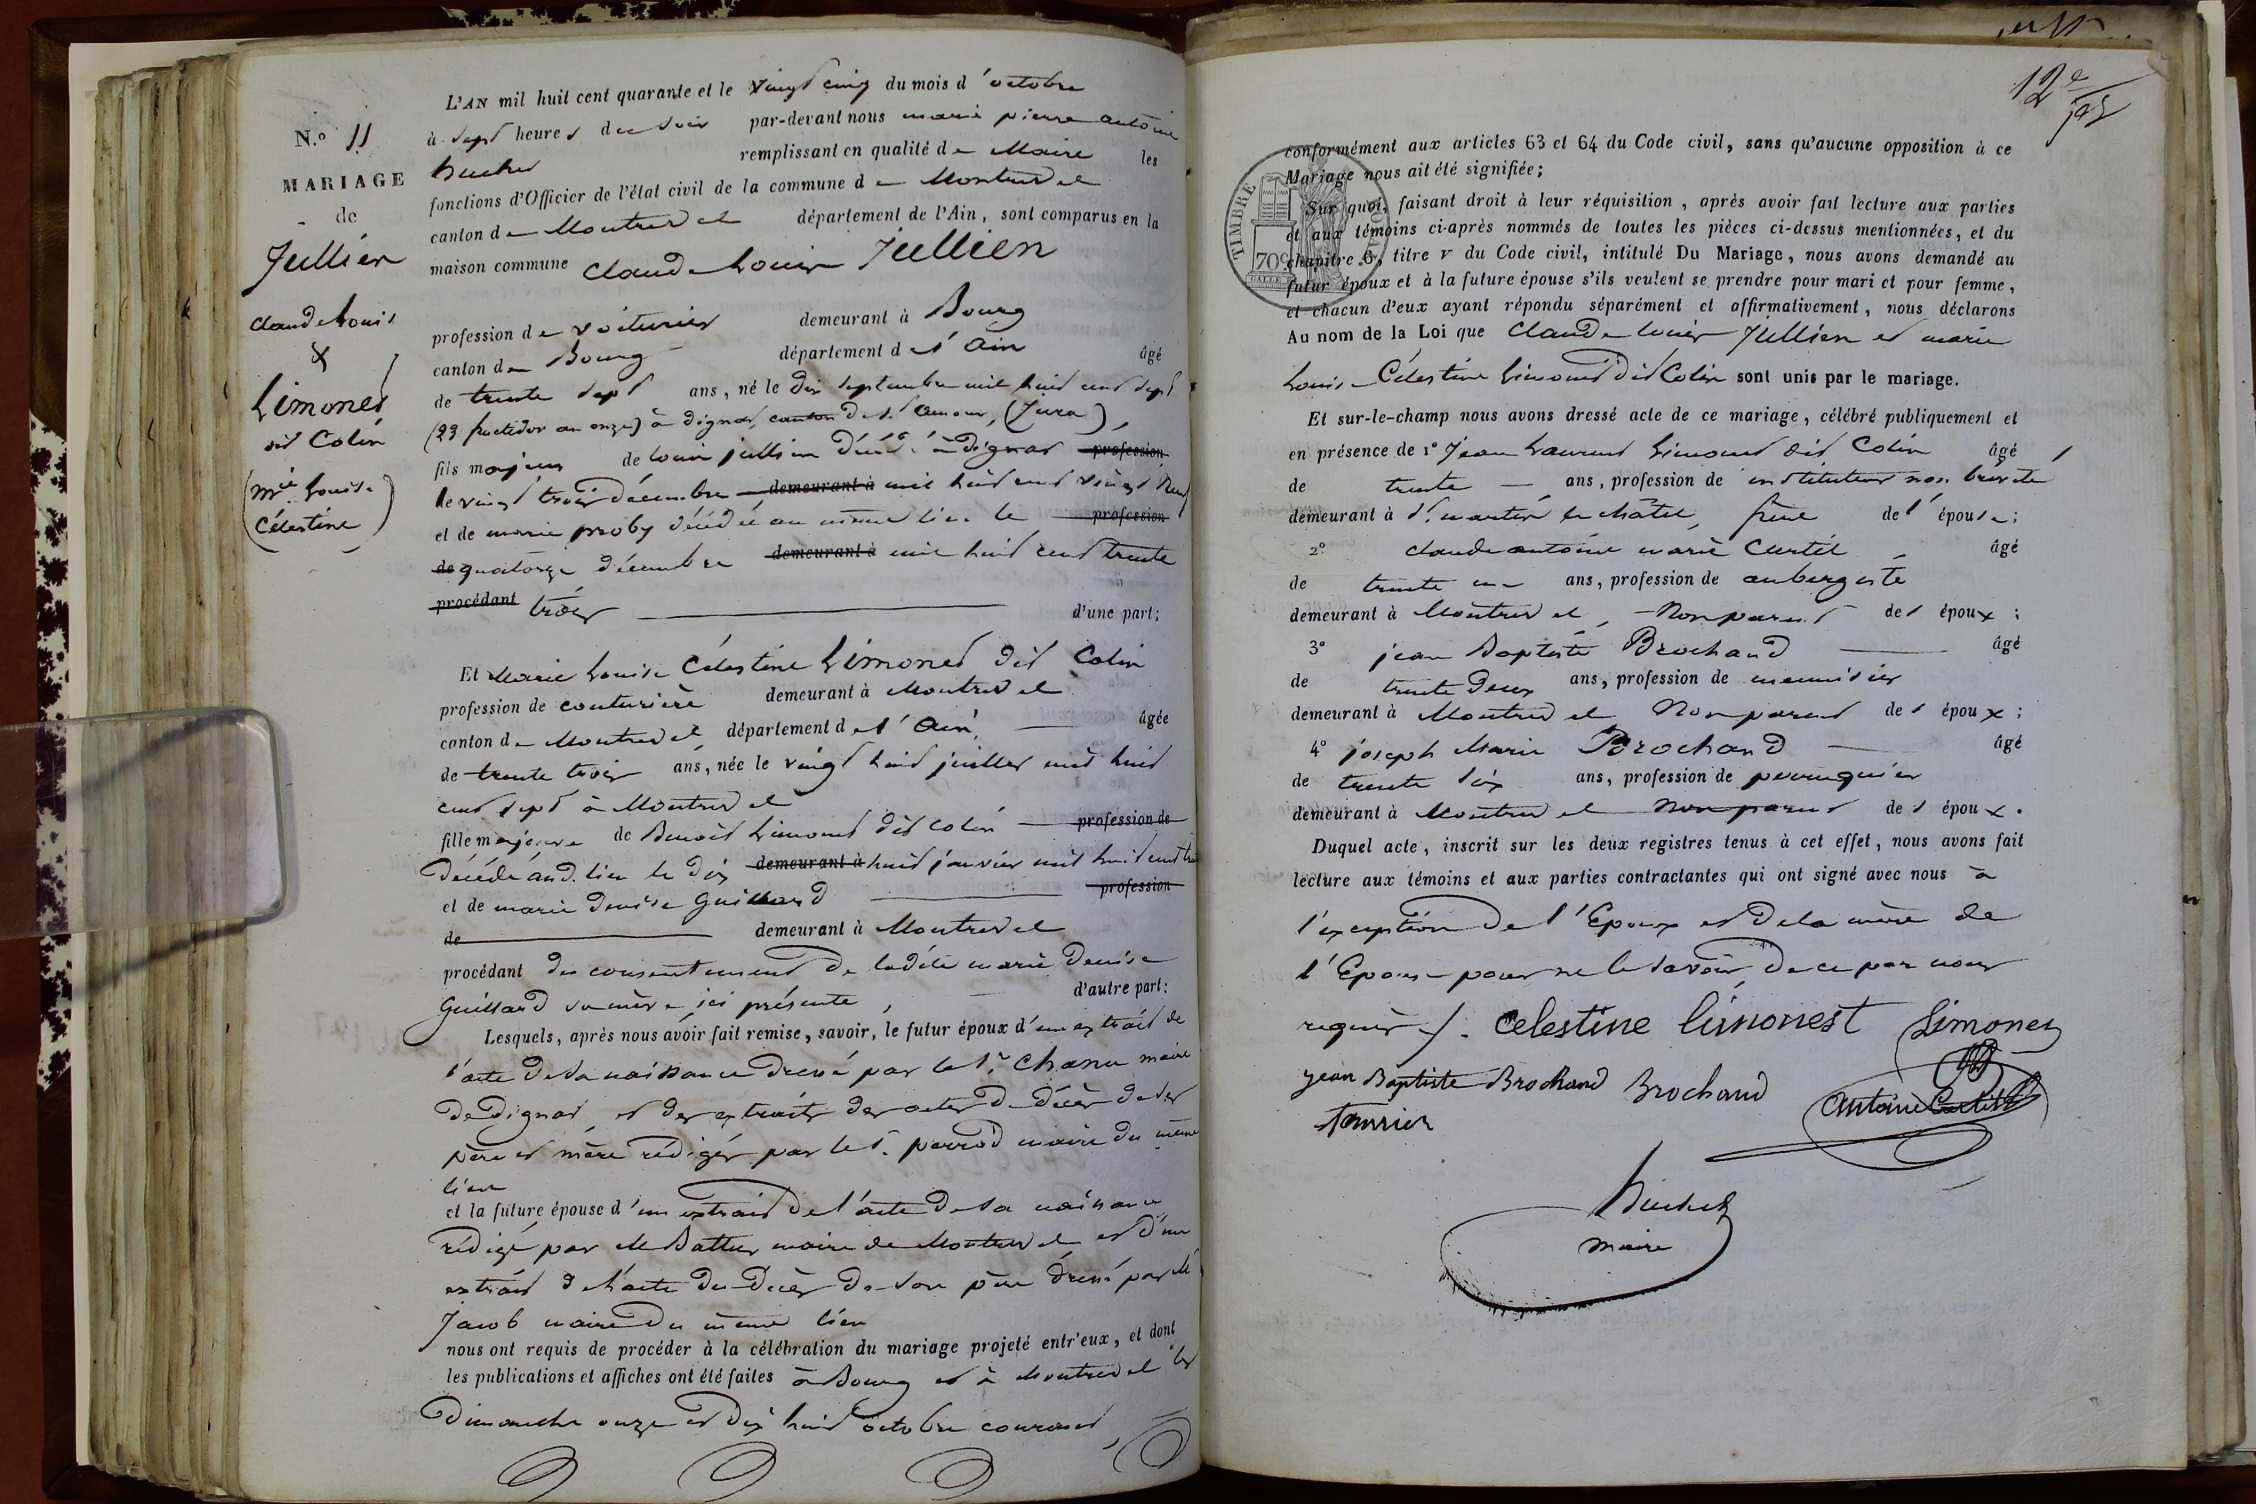 N.o 11
MARIAGE
de
Jullien
Claude Louis
&
Limonet
dit Colin
(Mie Louise
Célestine)
L'AN mil huit cent quarante et le vingt cinq du mois d'octobre
à sept heures du soir par-devant nous marie pierre antoine
huchet remplissant en qualité de Maire les
fonctions d'Officier de l'état civil de la commune de Montrevel
canton de Montrevel département de l'Ain, sont comparus en la
maison commune Claude Louis Jullien
profession de voiturier demeurant à Bourg
canton de Bourg département de l'Ain âgé
de trente sept ans, né le dix septembre mil huit cent sept
(23 fructidor an onze) à digna, canton de St amour, (Jura),
fils majeur de louis jullien décédé à digna profession
le vingt trois décembre demeurant à mil huit cent vingt neuf
et de marie proby décédée au même lieu le profession
de quatorze décembre demeurant à mil huit cent trente
procédant trois d'une part;
Et Marie Louise Célestine Limonet dit Colin
profession de couturière demeurant à Montrevel
canton de Montrevel, département de l'Ain, âgée
de trente trois ans, née le vingt huit juillet mil huit
cent sept à Montrevel
fille majeure de Benoit Limonet dit Colin profession de
décédé aud. lieu le dix demeurant à huit janvier mil huit cent
et de marie denise Guillard profession
de demeurant à Montrevel
procédant du consentement de ladite marie Denise
Guillard sa mère ici présente, d'autre part:
Lesquels, après nous avoir fait remise, savoir, le futur époux d'un extrait de
l'acte de sa naissance dressé par le Sr. Chanu maire
de digna et des extraits des actes de décès de ses
père et mère rédigés par le S. perrod maire du même
lieu
et la future épouse d'un extrait de l'acte de sa naissance
rédigé par M Battur maire de Montrevel et d'un
extrait de l'acte du décès de son père dressé par M
Jacob maire du même lieu
nous ont requis de procéder à la célébration du mariage projeté entr'eux, et dont
les publications et affiches ont été faites à Bourg et à Montrevel les
Dimanche onze et dix huit octobre courant,
12e
conformément aux articles 63 et 64 du Code civil, sans qu'aucune opposition à ce
Mariage nous ait été signifiée;
TIMBRE ROYAL
70c
Sur quoi, faisant droit à leur réquisition, après avoir fait lecture aux parties
et aux témoins ci-après nommés de toutes les pièces ci-dessus mentionnées, et du
chapitre 6, titre v du Code civil, intitulé Du Mariage, nous avons demandé au
futur époux et à la future épouse s'ils veulent se prendre pour mari et pour femme,
et chacun d'eux ayant répondu séparément et affirmativement, nous déclarons
Au nom de la Loi que Claude louis Jullien et marie
Louise Célestine Limonet dit Colin sont unis par le mariage.
Et sur-le-champ nous avons dressé acte de ce mariage, célébré publiquement et
en présence de 1o Jean Laurent Limonet dit Colin âgé
de trente ans, profession de instituteur non breveté
demeurant à St. martin le châtel, frère de l'épouse;
2o claude antoine marie Curtil âgé
de trente un ans, profession de aubergiste
demeurant à Montrevel, Non parent des époux;
3o jean Baptiste Brochand âgé
de trente deux ans, profession de menuisier
demeurant à Montrevel Non parent des époux;
4o joseph Marie Brochand âgé
de trente six ans, profession de perruquier
demeurant à Montrevel Non parent des époux.
Duquel acte, inscrit sur les deux registres tenus à cet effet, nous avons fait
lecture aux témoins et aux parties contractantes qui ont signé avec nous à
l'exception de l'Epoux et de la mère de
l'Epouse pour ne le savoir, de ce par nous
requis ./. celestine limonest Limonet
jean Baptiste Brochand Brochand Antoine Curtil
Huchet
maire